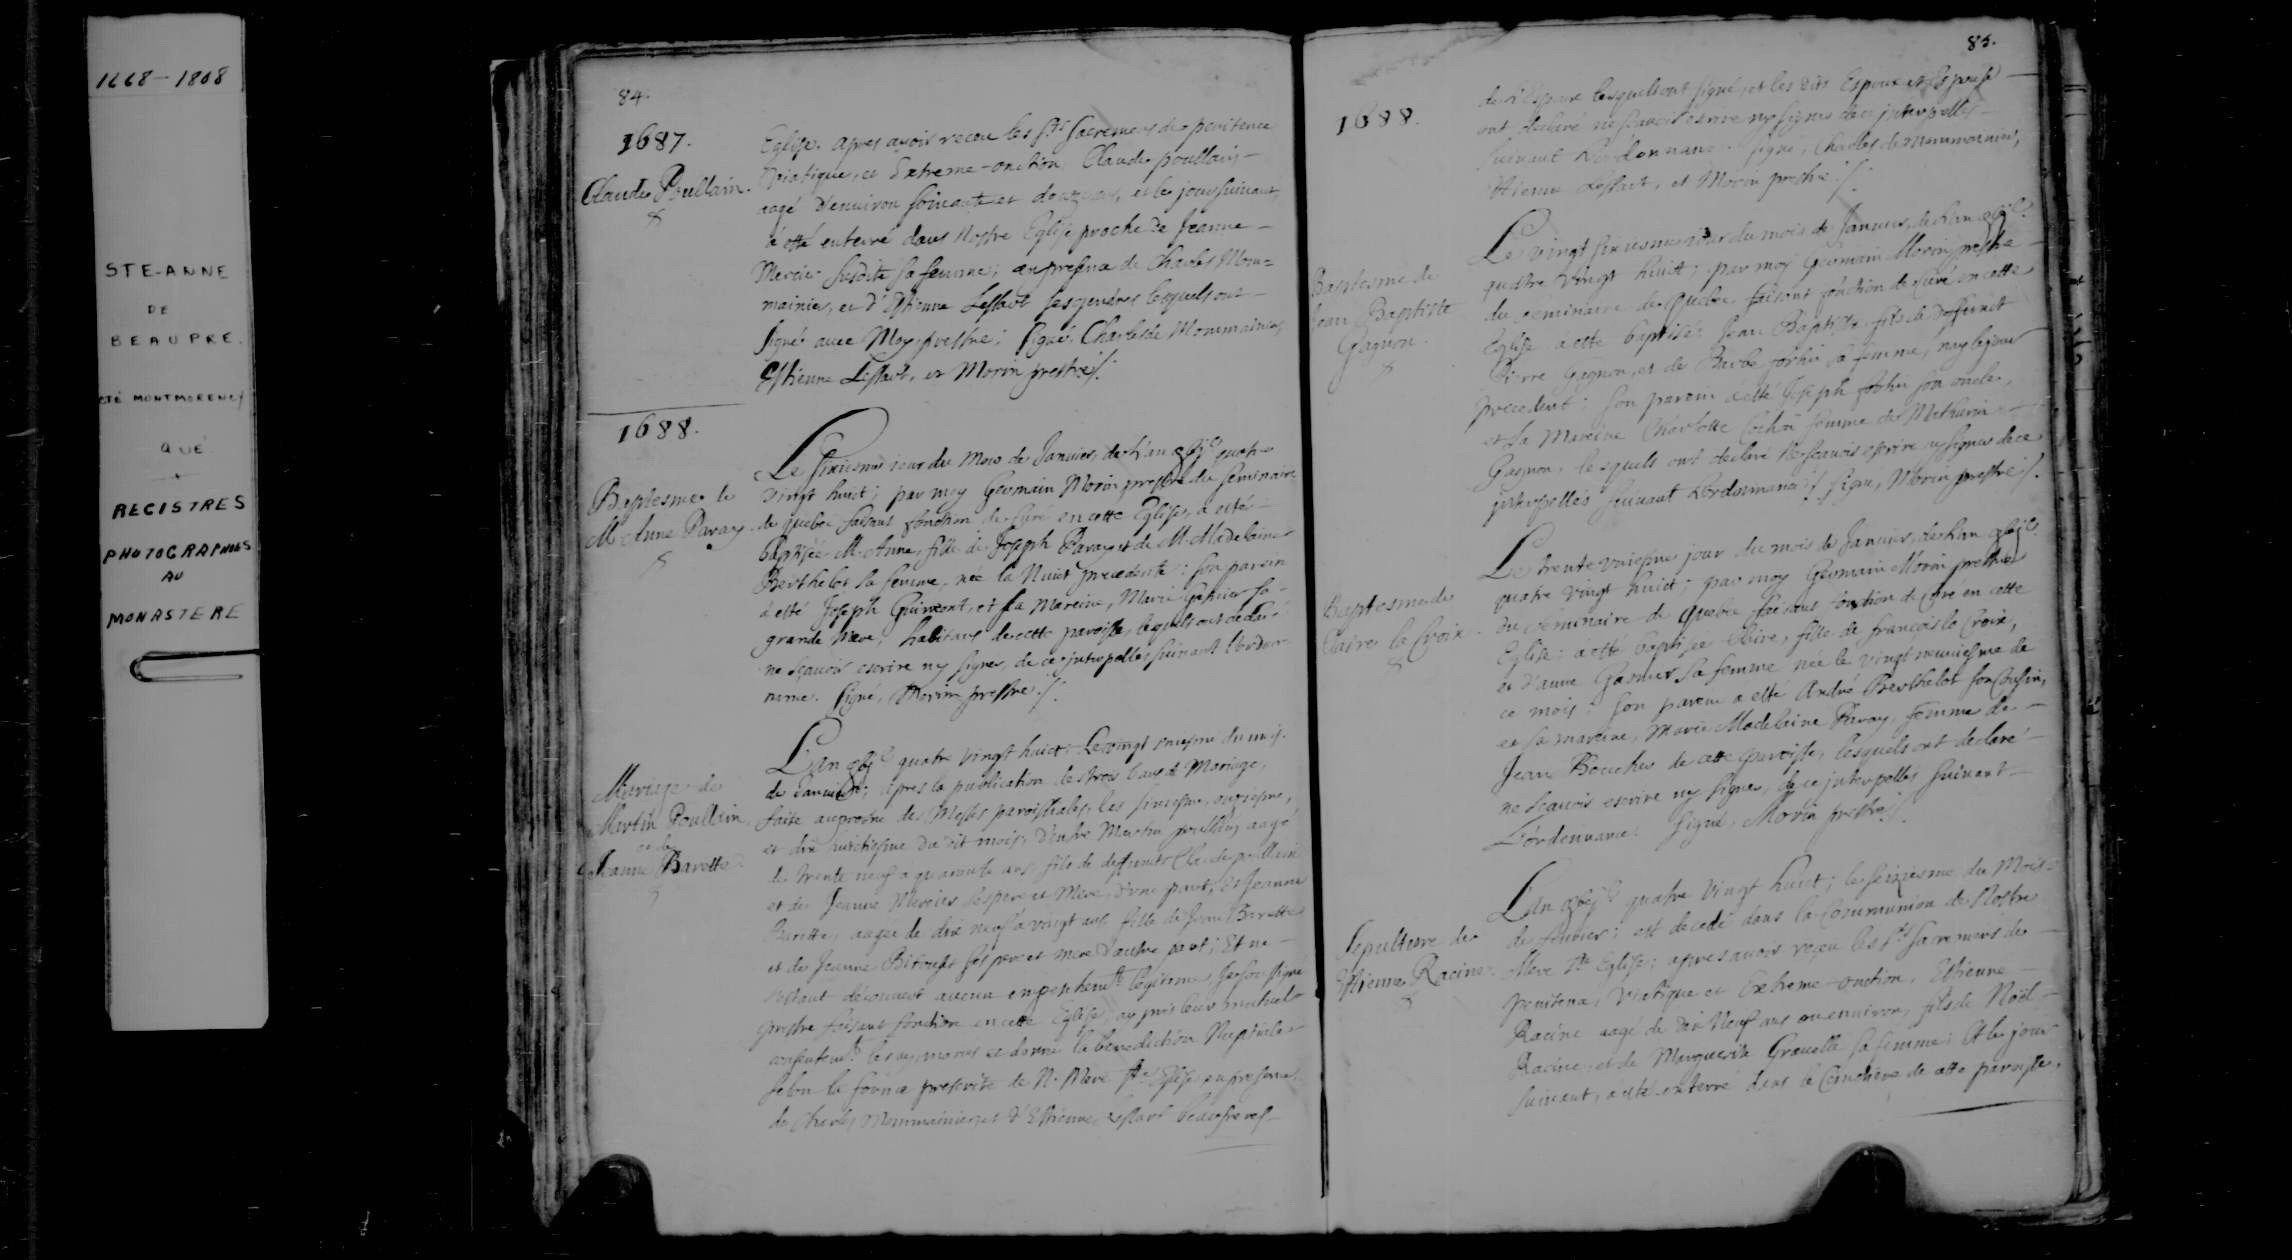 1668-1808
STE-ANNE
DE
BEAUPRE.
CTÉ MONTMORENCY
QUÉ
REGISTRES
PHOTOGRAPHIÉS
AU
MONASTERE
84.
1687.
Claude Poullain.
Eglise. apres avoir receu les sts Sacremens de penitence
Viatique, et Extreme-onction Claude poullain
aagé d'environ soixante et douze ans, et le jour suivant,
a esté enterré dans Nostre Eglise proche de Jeanne
Mercier susdite sa femme; en presence de Charles Mou=
mainier, et d'Estienne Lessart ses gendres lesquels ont
signé avec Moy prestre; signé. Charles de Mommainier
Estienne Lessart, et Morin prestre ./.
1688.
Baptesme de
M. Anne Paray.
Le sixiesme jour du Mois de Janvier, de L'an quatre
vingt huict; par moy Germain Morin prestre du Seminaire
de quebec faisant fonction de Curé en cette Eglise, a esté
baptisée M. Anne, fille de Joseph Paray et de M. Madelaine
Berthelot sa femme, née la Nuict precedente: son parein
a esté Joseph Guimont, et sa Mareine, Marie Gasnier sa
grande Mere, habitans de cette paroisse, lesquels ont declaré
ne sçavoir escrire ny signer, de ce interpellés suivant l'ordon-
nance. Signé, Morin prestre ./.
Mariage de
Martin Poullain
et de
Jeanne Barette
L'an quatre vingt huict; Le vingt uniesme du mois
de Janvier; apres la publication des trois bans de Mariage,
faite au prosne des Messes paroissiales, les sixiesme, onziesme,
et dix huictiesme du dit mois, d'entre Martin poullain, aagé
de trente neuf a quarante ans fils de deffunts Claude poullain
et de Jeanne Mercier ses pere et Mere, d'une part; Et Jeanne
Barette, aagée de dix neuf a vingt ans fille de Jean Barette
et de Jeanne Bitouset ses pere et mere d'autre part; Et ne
s'estant decouvert aucun empeschemt. legitime Je sousigné
prestre faisant fonction en cette Eglise ay pris leur mutuel
consentemt. les ay mariés et donné la benediction Nuptiale
selon la forme prescrite de N. Mere ste Eglise en presence
de Charles Mommainier, et d'Estienne Lessart beaufreres
85.
1688.
de l'Espoux lesquels ont signé, et les dits Espoux et Espouse
ont declaré ne sçavoir escrire ny signer de ce interpellés
suivant L'ordonnance. signé, Charles de Mommainier,
Estienne Lessart, et Morin prestre ./.
Baptesme de
Jean Baptiste
Gagnon.
Le vingt sixiesme jour du mois de Janvier, de L'an
quatre vingt huict; par moy Germain Morin prestre
du seminaire de Quebec faisant fonction de Curé en cette
Eglise a esté baptisé: Jean Baptiste fils de deffunct
Pierre Gagnon, et de Barbe fortin sa femme, nay le jour
precedent: son parein a esté Joseph fortin son oncle,
et sa Mareine Charlotte Cochon femme de Mathurin
Gagnon, lesquels ont declaré ne sçavoir escrire ny signer de ce
interpellés suivant L'ordonnance ./. signé, Morin prestre ./.
Baptesme de
Claire la Croix.
Le trente uniesme jour du mois de Janvier, de L'an
quatre vingt huict; par moy Germain Morin prestre
du Seminaire de Quebec faisant fonction de Curé en cette
Eglise: a esté baptisée Claire, fille de françois la Croix,
et d'anne Gasnier sa femme née le vingt neuviesme de
ce mois: son parein a esté André Berthelot son Cousin,
et sa mareine, Marie Madelaine Paray, femme de
Jean Boucher de cette paroisse, lesquels ont declaré
ne sçavoir escrire ny signer, de ce interpellés suivant
L'ordonnance. signé, Morin prestre ./.
Sepulture de
Estienne Racine.
L'an quatre vingt huict; le seiziesme du Mois
de fevrier; est decedé dans la Communion de Nostre
Mere ste Eglise; apres avoir reçeu les sts Sacremens de
penitence, Viatique et Extreme-onction, Estienne
Racine aagé de dix Neuf ans ou environ, fils de Noël
Racine, et de Marguerite Gravelle sa femme: Et le jour
suivant, a esté enterré dans le Cimetiere de cette paroisse,